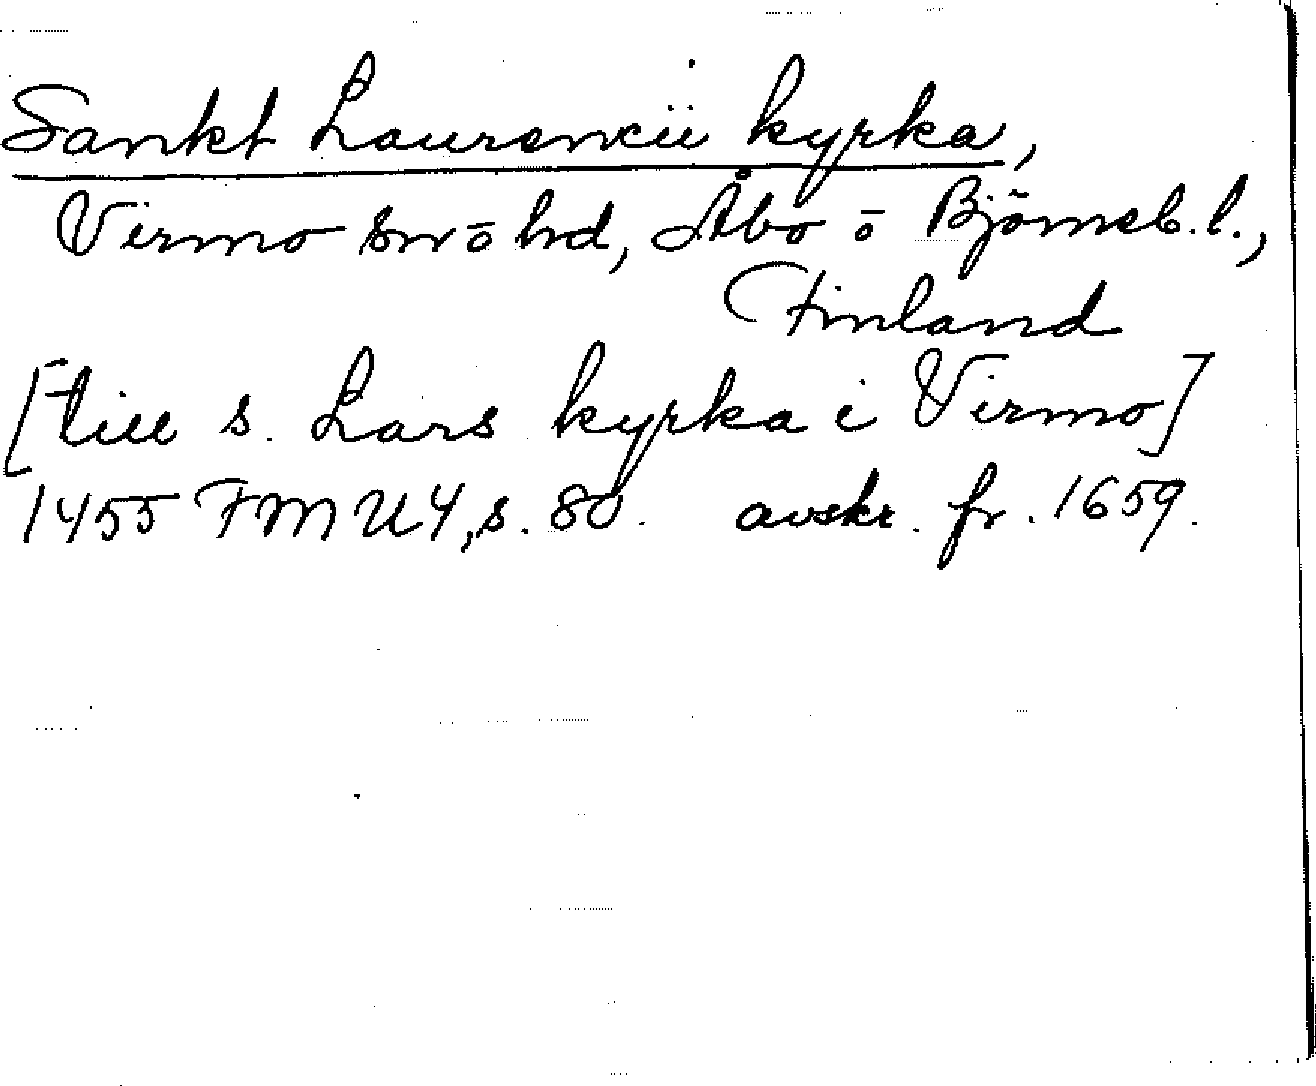 Sankt Laurencii kyrka,
Virmo sn ō hd, Åbo ō Björneb. l.,
Finland
[till s. Lars kyrka i Virmo]
1455 FMU 4, s. 80. avskr. fr. 1659.